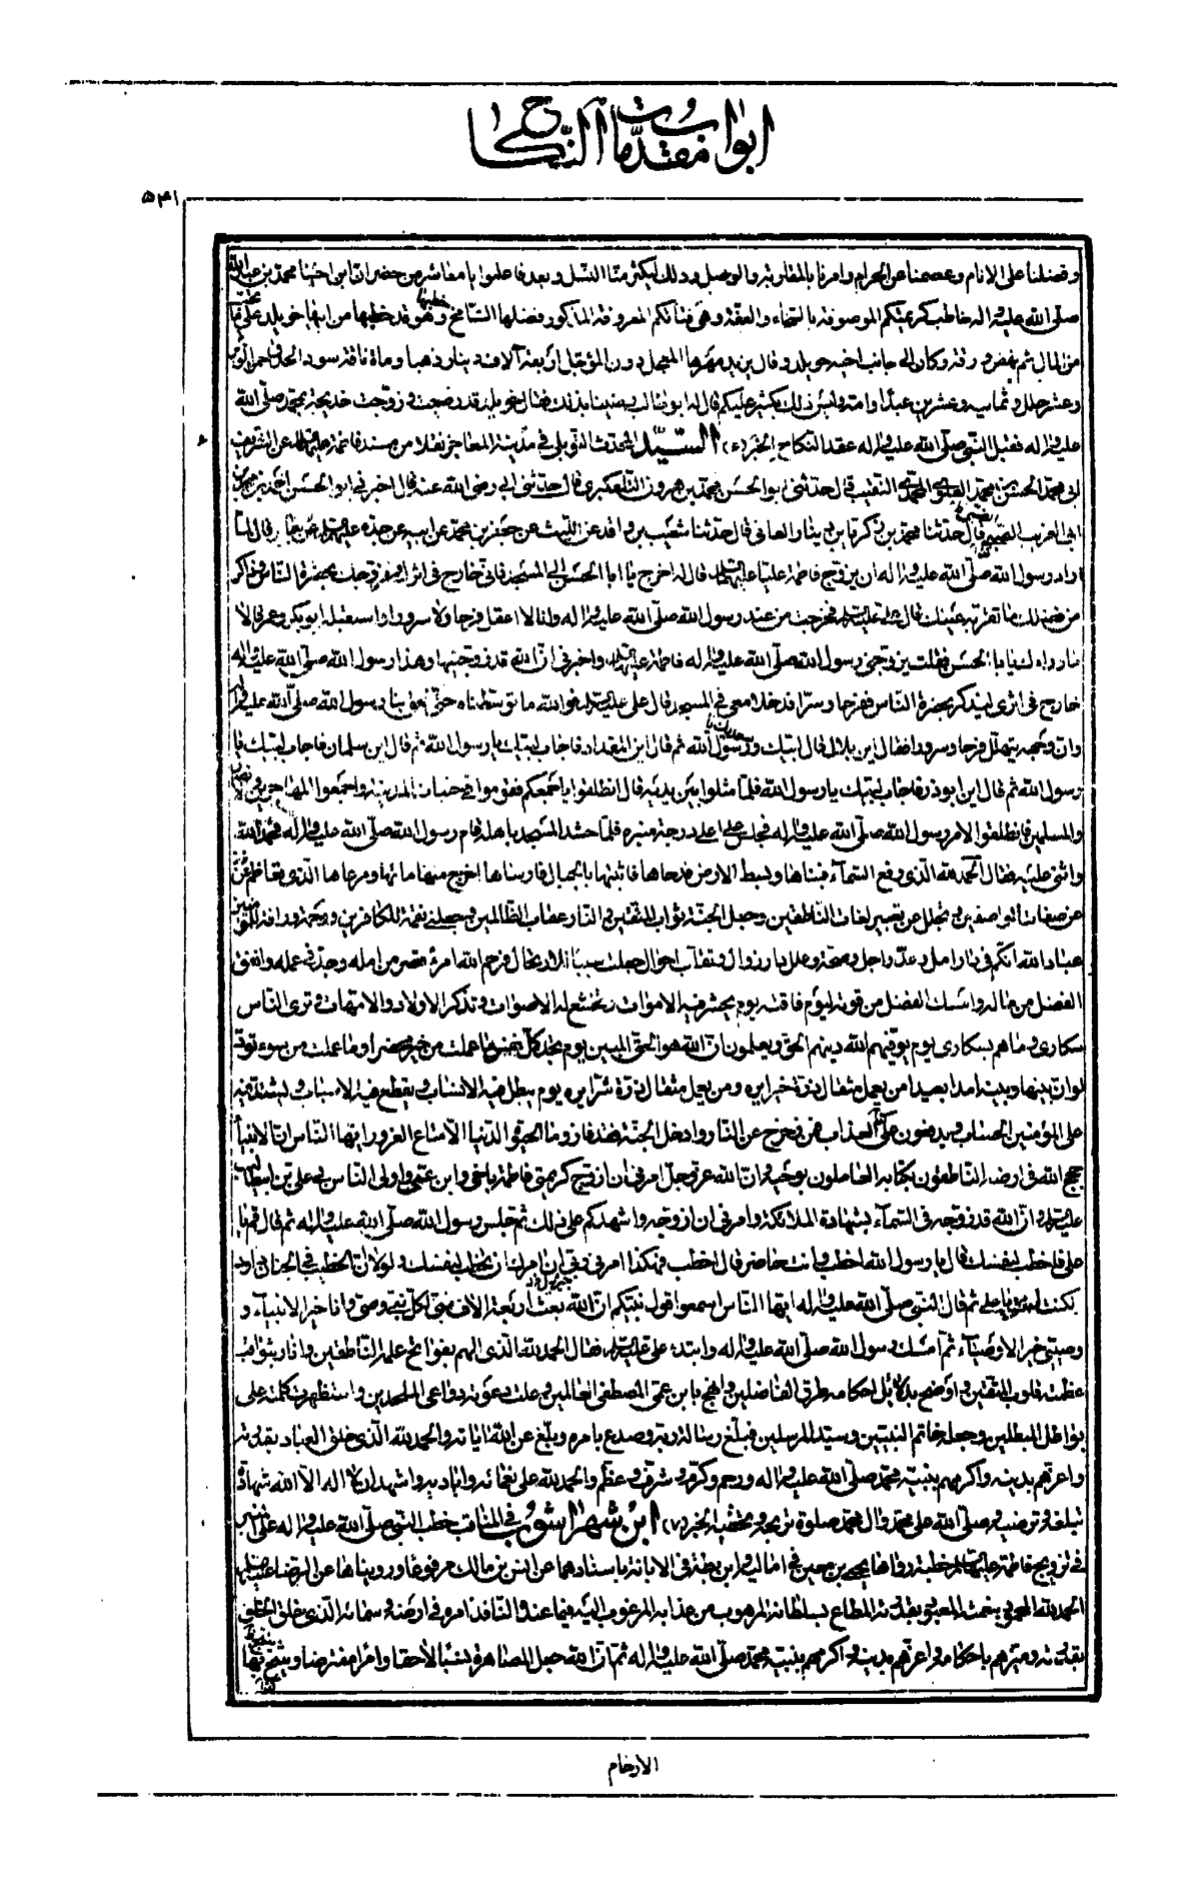 ابواب مقدّمات النّكاح
۵۴۱
وفضلنا على الانام وعصمنا عن الحرام وامرنا بالمقاربة والوصل وذلك ليكثر منّا النسل وبعد فاعلموا يا معاشر من حضر ان ابن اخينا محمّد بن عبدالله
صلّى الله عليه واله خاطب كريمتكم الموصوفة بالسخاء والعفّة وهى فتاتكم المعروفة المذكور فضلها الشامخ وهو قد خطبها من ابيها خويلد على ما تحبّ
من المال ثم نهض ورقة وكان الى جانب اخيه خويلد وقال نريد مهرها المعجل دون المؤجل اربعة آلاف دينار ذهبا ومأة ناقة سود الحدق حمر الوبر
وعشر حلل وثمانية وعشرين عبدا وامة وليس ذلك بكثير عليكم قال له ابو طالب رضينا بذلك فقال خويلد قد رضيت وزوجت خديجة بمحمّد صلّى الله
عليه واله فقبل النّبى صلّى الله عليه واله عقد النكاح الخبر السّيّد المحدث التوبلى فى مدينة المعاجز نقلا من مسند فاطمة عن الشريف
ابى محمّد الحسن بن محمّد العلوى المحمّدى النقيب قال حدثنى ابو الحسن محمّد بن هرون التلعكبرى قال حدثنى ابى رضى الله عنه قال اخبرنى ابو الحسن احمد بن محمد بن
ابى العريب الضبى قال حدثنا محمّد بن زكريا بن دينار الغلابى قال حدثنا شعيب بن واقد عن الليث عن جعفر بن محمّد عن ابيه عن جدّه عليهم السلام عن جابر قال لمّا
اراد رسول الله صلّى الله عليه واله ان يزوّج فاطمة عليّا عليهما السلام قال له اخرج يا ابا الحسن الى المسجد فانى خارج فى اثرك ومزوّجك بحضرة النّاس وذاكر
من فضلك ما تقرّ به عينك قال على عليه السلام فخرجت من عند رسول الله صلّى الله عليه واله وانا لا اعقل فرحا وسرورا واستقبلنى ابو بكر وعمر قالا
ما وراءك يا ابا الحسن فقلت يزوّجنى رسول الله صلّى الله عليه واله فاطمة عليها السلام واخبرنى انّ الله قد زوّجنيها وهذا رسول الله صلّى الله عليه واله
خارج فى اثرى ليذكر بحضرة النّاس ففرحا وسرّا فدخلا معى فى المسجد قال على عليه السلام فوالله ما توسطناه حتّى لحق بنا رسول الله صلّى الله عليه واله
وان وجهه يتهلّل فرحا وسرورا فقال اين بلال فقال لبّيك يا رسول الله ثم قال اين المقداد فاجاب لبّيك يا رسول الله ثم قال اين سلمان فاجاب لبّيك يا
رسول الله ثم قال اين ابو ذر فاجاب لبّيك يا رسول الله فلمّا مثلوا بين يديه قال انطلقوا باجمعكم فقوموا فى جنبات المدينة واجمعوا المهاجرين والانصار
والمسلمين فانطلقوا لامر رسول الله صلّى الله عليه واله فجلس على اعلى درجة منبره فلمّا حشد المسجد باهله قام رسول الله صلّى الله عليه واله فحمد الله
واثنى عليه فقال الحمد لله الذى رفع السّماء فبناها وبسط الارض فدحاها فاثبتها بالجبال فارساها اخرج منها ماءها ومرعاها الذى تعاظم
عن صفات الواصفين وتجلّل عن تعبير لغات النّاطقين وجعل الجنّة ثواب المتّقين والنار عقاب الظالمين وجعلنى نقمة للكافرين ورحمة ورافة للمؤمنين
عباد الله انّكم فى دار امل وعدّ واجل وصحّة وعلل دار زوال وتقلّب احوال جعلت سببا للارتحال فرحم الله امرء قصر من امله وجدّ فى عمله وانفق
الفضل من ماله وامسك الفضل من قوته ليوم فاقته يوم يحشر فيه الاموات وتخشع له الاصوات وتذكر الاولاد والامّهات وترى النّاس
سكارى وما هم بسكارى يوم يوفّيهم الله دينهم الحق ويعلمون انّ الله هو الحق المبين يوم تجد كلّ نفس ما عملت من خير محضرا وما عملت من سوء تودّ
لو ان بينها وبينه امدا بعيدا من يعمل مثقال ذرّة خيرا يره ومن يعمل مثقال ذرّة شرّا يره يوم يبطل فيه الانساب ويقطع فيه الاسباب ويشتدّ فيه
على المؤمنين الحساب ويدفعون الى العذاب فمن زحزح عن النّار وادخل الجنّة فقد فاز وما الحيوة الدنيا الّا متاع الغرور ايّها النّاس انّما الانبياء
حجج الله فى ارضه النّاطقون بكتابه العاملون بوحيه انّ الله عزّ وجل امرنى ان ازوّج كريمتى فاطمة باخى وابن عمّى واولى النّاس بى على بن ابيطالب
عليه السلام وانّ الله قد زوّجه فى السّماء بشهادة الملائكة وامرنى ان ازوّجه واشهدكم على ذلك ثم جلس رسول الله صلّى الله عليه واله ثم قال قم يا
على فاخطب لنفسك قال يا رسول الله اخطب وانت حاضر قال اخطب فهكذا امرنى ربّى ان امرك ان تخطب لنفسك ولولا ان الخطيب فى الجنان داود
لكنت انت يا على ثم قال النّبى صلّى الله عليه واله ايّها النّاس اسمعوا قول نبيّكم انّ الله بعث اربعة الاف نبى لكلّ نبى وصى وانا خير الانبياء و
وصيّى خير الاوصياء ثم امسك رسول الله صلّى الله عليه واله وابتدء على عليه السلام فقال الحمد لله الذى الهم بفواتح علمه النّاطقين وانار بثواقب
عظمته قلوب المتّقين واوضح بدلائل احكامه طرق الفاضلين وانهج بابن عمّى المصطفى العالمين وعلت دعوته دواعى الملحدين واستظهرت كلمته على
بواطل المبطلين وجعله خاتم النبيّين وسيّد المرسلين فبلّغ رسالة ربّه وصدع بامره وبلّغ عن الله اياته والحمد لله الّذى خلق العباد بقدرته
واعزّهم بدينه واكرمهم بنبيّه محمّد صلّى الله عليه واله ورحم وكرّم وشرّف وعظّم والحمد لله على نعمائه واياديه واشهد ان لا اله الّا الله شهادة
تبلغه وترضيه وصلّى الله على محمّد وال محمّد صلوة تربحه وتحظيه الخبر (۷) ابن شهراشوب فى المناقب خطب النّبى صلّى الله عليه واله على المنبر
فى تزويج فاطمة عليها السلام خطبة رواها يحيى بن معين فى اماليه وابن بطة فى الابانة باسنادهما عن انس بن مالك مرفوعا وروينا عن الرضا عليه السلام
الحمد لله المحمود بنعمته المعبود بقدرته المطاع بسلطانه المرهوب من عذابه المرغوب اليه فيما عنده النافذ امره فى ارضه وسمائه الذى خلق الخلق
بقدرته وميّزهم باحكامه واعزّهم بدينه واكرمهم بنبيّه محمّد صلّى الله عليه واله ثم انّ الله جعل المصاهرة نسبا لاحقا وامرا مفترضا وشّج بها
الارحام